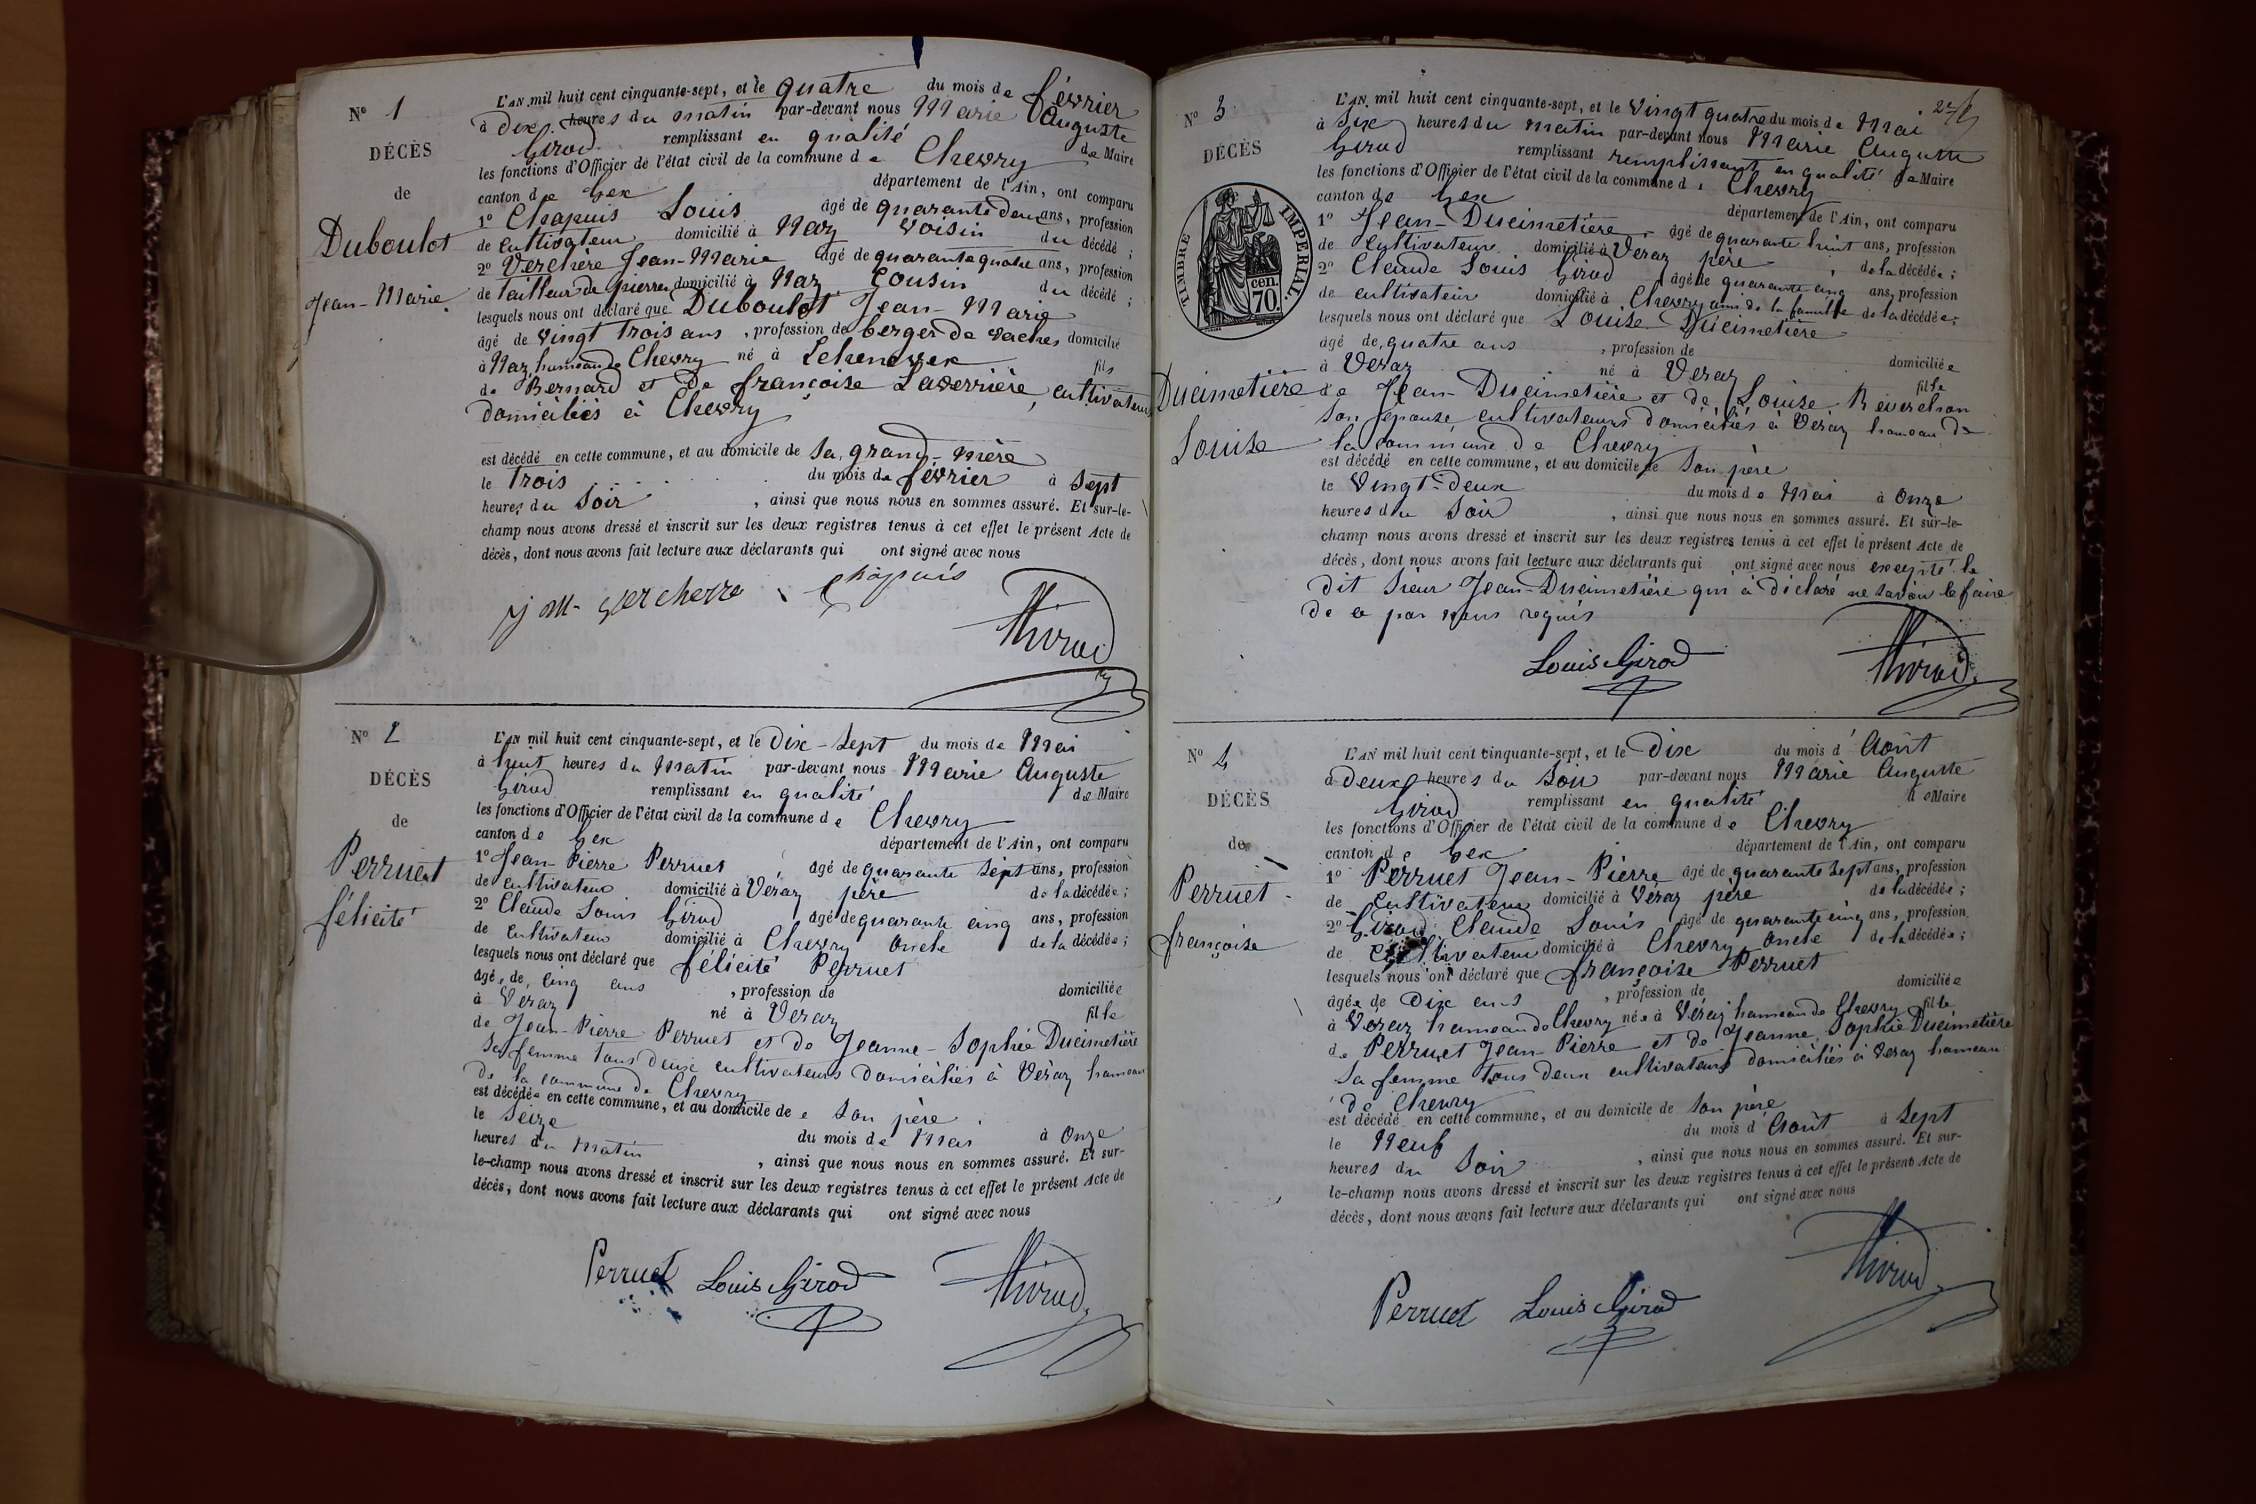 N° 1
DÉCÈS
de
Duboulot
Jean-Marie
L'AN mil huit cent cinquante-sept, et le quatre du mois de février
à dix heures du matin par-devant nous Marie Auguste
Girod remplissant en qualité de Maire
les fonctions d'Officier de l'état civil de la commune de Chevry
canton de Gex département de l'Ain, ont comparu
1° Chapuis Louis âgé de quarante deux ans, profession
de cultivateur domicilié à Naz voisin du décédé ;
2° Verchère Jean-Marie âgé de quarante quatre ans, profession
de tailleur de pierres domicilié à Naz Cousin du décédé ;
lesquels nous ont déclaré que Duboulot Jean-Marie
âgé de vingt trois ans, profession de berger de vaches domicilié
à Naz hameau de Chevry né à Echenevex fils
de Bernard et de françoise Laverrière, cultivateurs
domiciliés à Chevry
est décédé en cette commune, et au domicile de sa grand-mère
le trois du mois de février à sept
heures du soir, ainsi que nous nous en sommes assuré. Et sur-le-
champ nous avons dressé et inscrit sur les deux registres tenus à cet effet le présent Acte de
décès, dont nous avons fait lecture aux déclarants qui ont signé avec nous
j m- vercherre chapuis
Girod
N° 2
DÉCÈS
de
Perruet
félicité
L'AN mil huit cent cinquante-sept, et le Dix-sept du mois de Mai
à huit heures du matin par-devant nous Marie Auguste
Girod remplissant en qualité de Maire
les fonctions d'Officier de l'état civil de la commune de Chevry
canton de Gex département de l'Ain, ont comparu
1° Jean-Pierre Perruet âgé de quarante sept ans, profession
de cultivateur domicilié à Véraz père de la décédée ;
2° Claude Louis Girod âgé de quarante cinq ans, profession
de cultivateur domicilié à Chevry oncle de la décédée ;
lesquels nous ont déclaré que félicité Perruet
âgée de cinq ans, profession de domiciliée
à Veraz né à Veraz fille
de Jean-Pierre Perruet et de Jeanne-Sophie Ducimetière
sa femme tous deux cultivateurs domiciliés à Véraz hameau
de la commune de Chevry
est décédée en cette commune, et au domicile de son père
le seize du mois de Mai à onze
heures du matin, ainsi que nous nous en sommes assuré. Et sur-
le-champ nous avons dressé et inscrit sur les deux registres tenus à cet effet le présent Acte de
décès, dont nous avons fait lecture aux déclarants qui ont signé avec nous
Perruet Louis Girod Girod
N° 3
DÉCÈS
TIMBRE IMPERIAL.
cen.
70.
Ducimetière
Louise
L'AN mil huit cent cinquante-sept, et le vingt quatre du mois de Mai
à six heures du matin par-devant nous Marie Auguste
Girod remplissant remplissant en qualité de Maire
les fonctions d'Officier de l'état civil de la commune de Chevry
canton de Gex département de l'Ain, ont comparu
1° Jean-Ducimetière âgé de quarante huit ans, profession
de cultivateur domicilié à Veraz père, de la décédée ;
2° Claude Louis Girod âgé de quarante cinq ans, profession
de cultivateur domicilié à Chevry ami de la famille de la décédée ;
lesquels nous ont déclaré que Louise Ducimetière
âgé de quatre ans, profession de domiciliée
à Veraz né à Veraz fille
de Jean Ducimetière et de Louise Reverchon
son épouse, cultivateurs domiciliés à Véraz hameau de
la commune de Chevry
est décédé en cette commune, et au domicile de son père
le vingt-deux du mois de Mai à onze
heures du soir, ainsi que nous nous en sommes assuré. Et sur-le-
champ nous avons dressé et inscrit sur les deux registres tenus à cet effet le présent Acte de
décès, dont nous avons fait lecture aux déclarants qui ont signé avec nous excepté le
dit sieur Jean-Ducimetière qui à déclaré ne savoir le faire
de ce par nous requis
Louis Girod Girod
N° 4
DÉCÈS
de
Perruet
françoise
L'AN mil huit cent cinquante-sept, et le dix du mois d'Août
à deux heures du soir par-devant nous Marie Auguste
Girod remplissant en qualité de Maire
les fonctions d'Officier de l'état civil de la commune de Chevry
canton de Gex département de l'Ain, ont comparu
1° Perruet Jean-Pierre âgé de quarante sept ans, profession
de cultivateur domicilié à Véraz père de la décédée ;
2° Girod Claude Louis âgé de quarante cinq ans, profession
de cultivateur domicilié à Chevry oncle de la décédée ;
lesquels nous ont déclaré que françoise Perruet
âgée de Dix ans, profession de domiciliée
à Véraz hameau de Chevry née à Véraz hameau de Chevry fille
de Perruet Jean-Pierre et de Jeanne Sophie Ducimetière
sa femme tous deux cultivateurs domiciliés à Veraz hameau
de Chevry
est décédé en cette commune, et au domicile de son père
le Neuf du mois d'Août à sept
heures du soir, ainsi que nous nous en sommes assuré. Et sur-
le-champ nous avons dressé et inscrit sur les deux registres tenus à cet effet le présent Acte de
décès, dont nous avons fait lecture aux déclarants qui ont signé avec nous
Perruet Louis Girod Girod